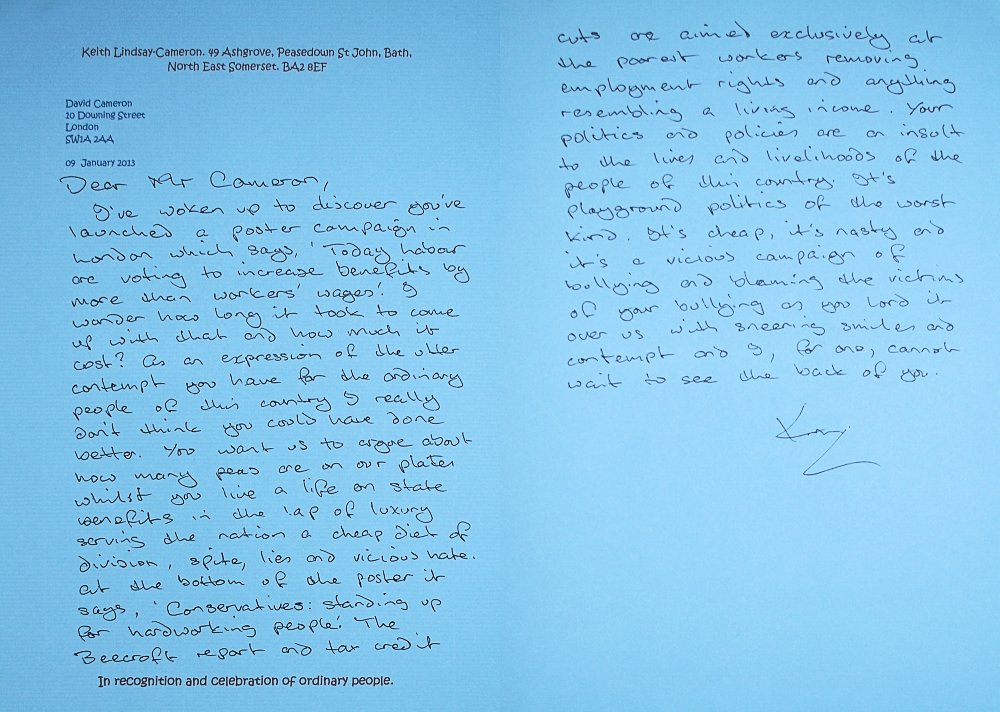 Keith Lindsay-Cameron. 49 Ashgrove, Peasedown St John, Bath,
North East Somerset. BA2 8EF
David Cameron
20 Downing Street
London
SW1A 2AA
09 January 2013
Dear Mr Cameron,
I've woken up to discover you've
launched a poster campaign in
London which says, 'Today Labour
are voting to increase benefits by
more than workers' wages'. I
wonder how long it took to come
up with that and how much it
cost? As an expression of the utter
contempt you have for the ordinary
people of this country I really
don't think you could have done
better. You want us to argue about
how many peas are on our plates
whilst you live a life on state
benefits in the lap of luxury
serving the nation a cheap diet of
division, spite, lies and vicious hate.
At the bottom of the poster it
says, 'Conservatives: standing up
for hardworking people'. The
Beecroft report and tax credit
In recognition and celebration of ordinary people.
cuts are aimed exclusively at
the poorest workers removing
employment rights and anything
resembling a living income. Your
politics and policies are an insult
to the lives and livelihoods of the
people of this country. It's
playground politics of the worst
kind. It's cheap, it's nasty and
it's a vicious campaign of
bullying and blaming the victims
of your bullying as you lord it
over us with sneering smiles and
contempt and I, for one, cannot
wait to see the back of you.